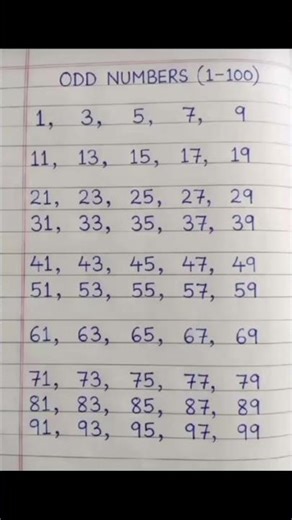 ODD NUMBERS (1-100)
1, 3, 5, 7, 9
11, 13, 15, 17, 19
21, 23, 25, 27, 29
31, 33, 35, 37, 39
41, 43, 45, 47, 49
51, 53, 55, 57, 59
61, 63, 65, 67, 69
71, 73, 75, 77, 79
81, 83, 85, 87, 89
91, 93, 95, 97, 99